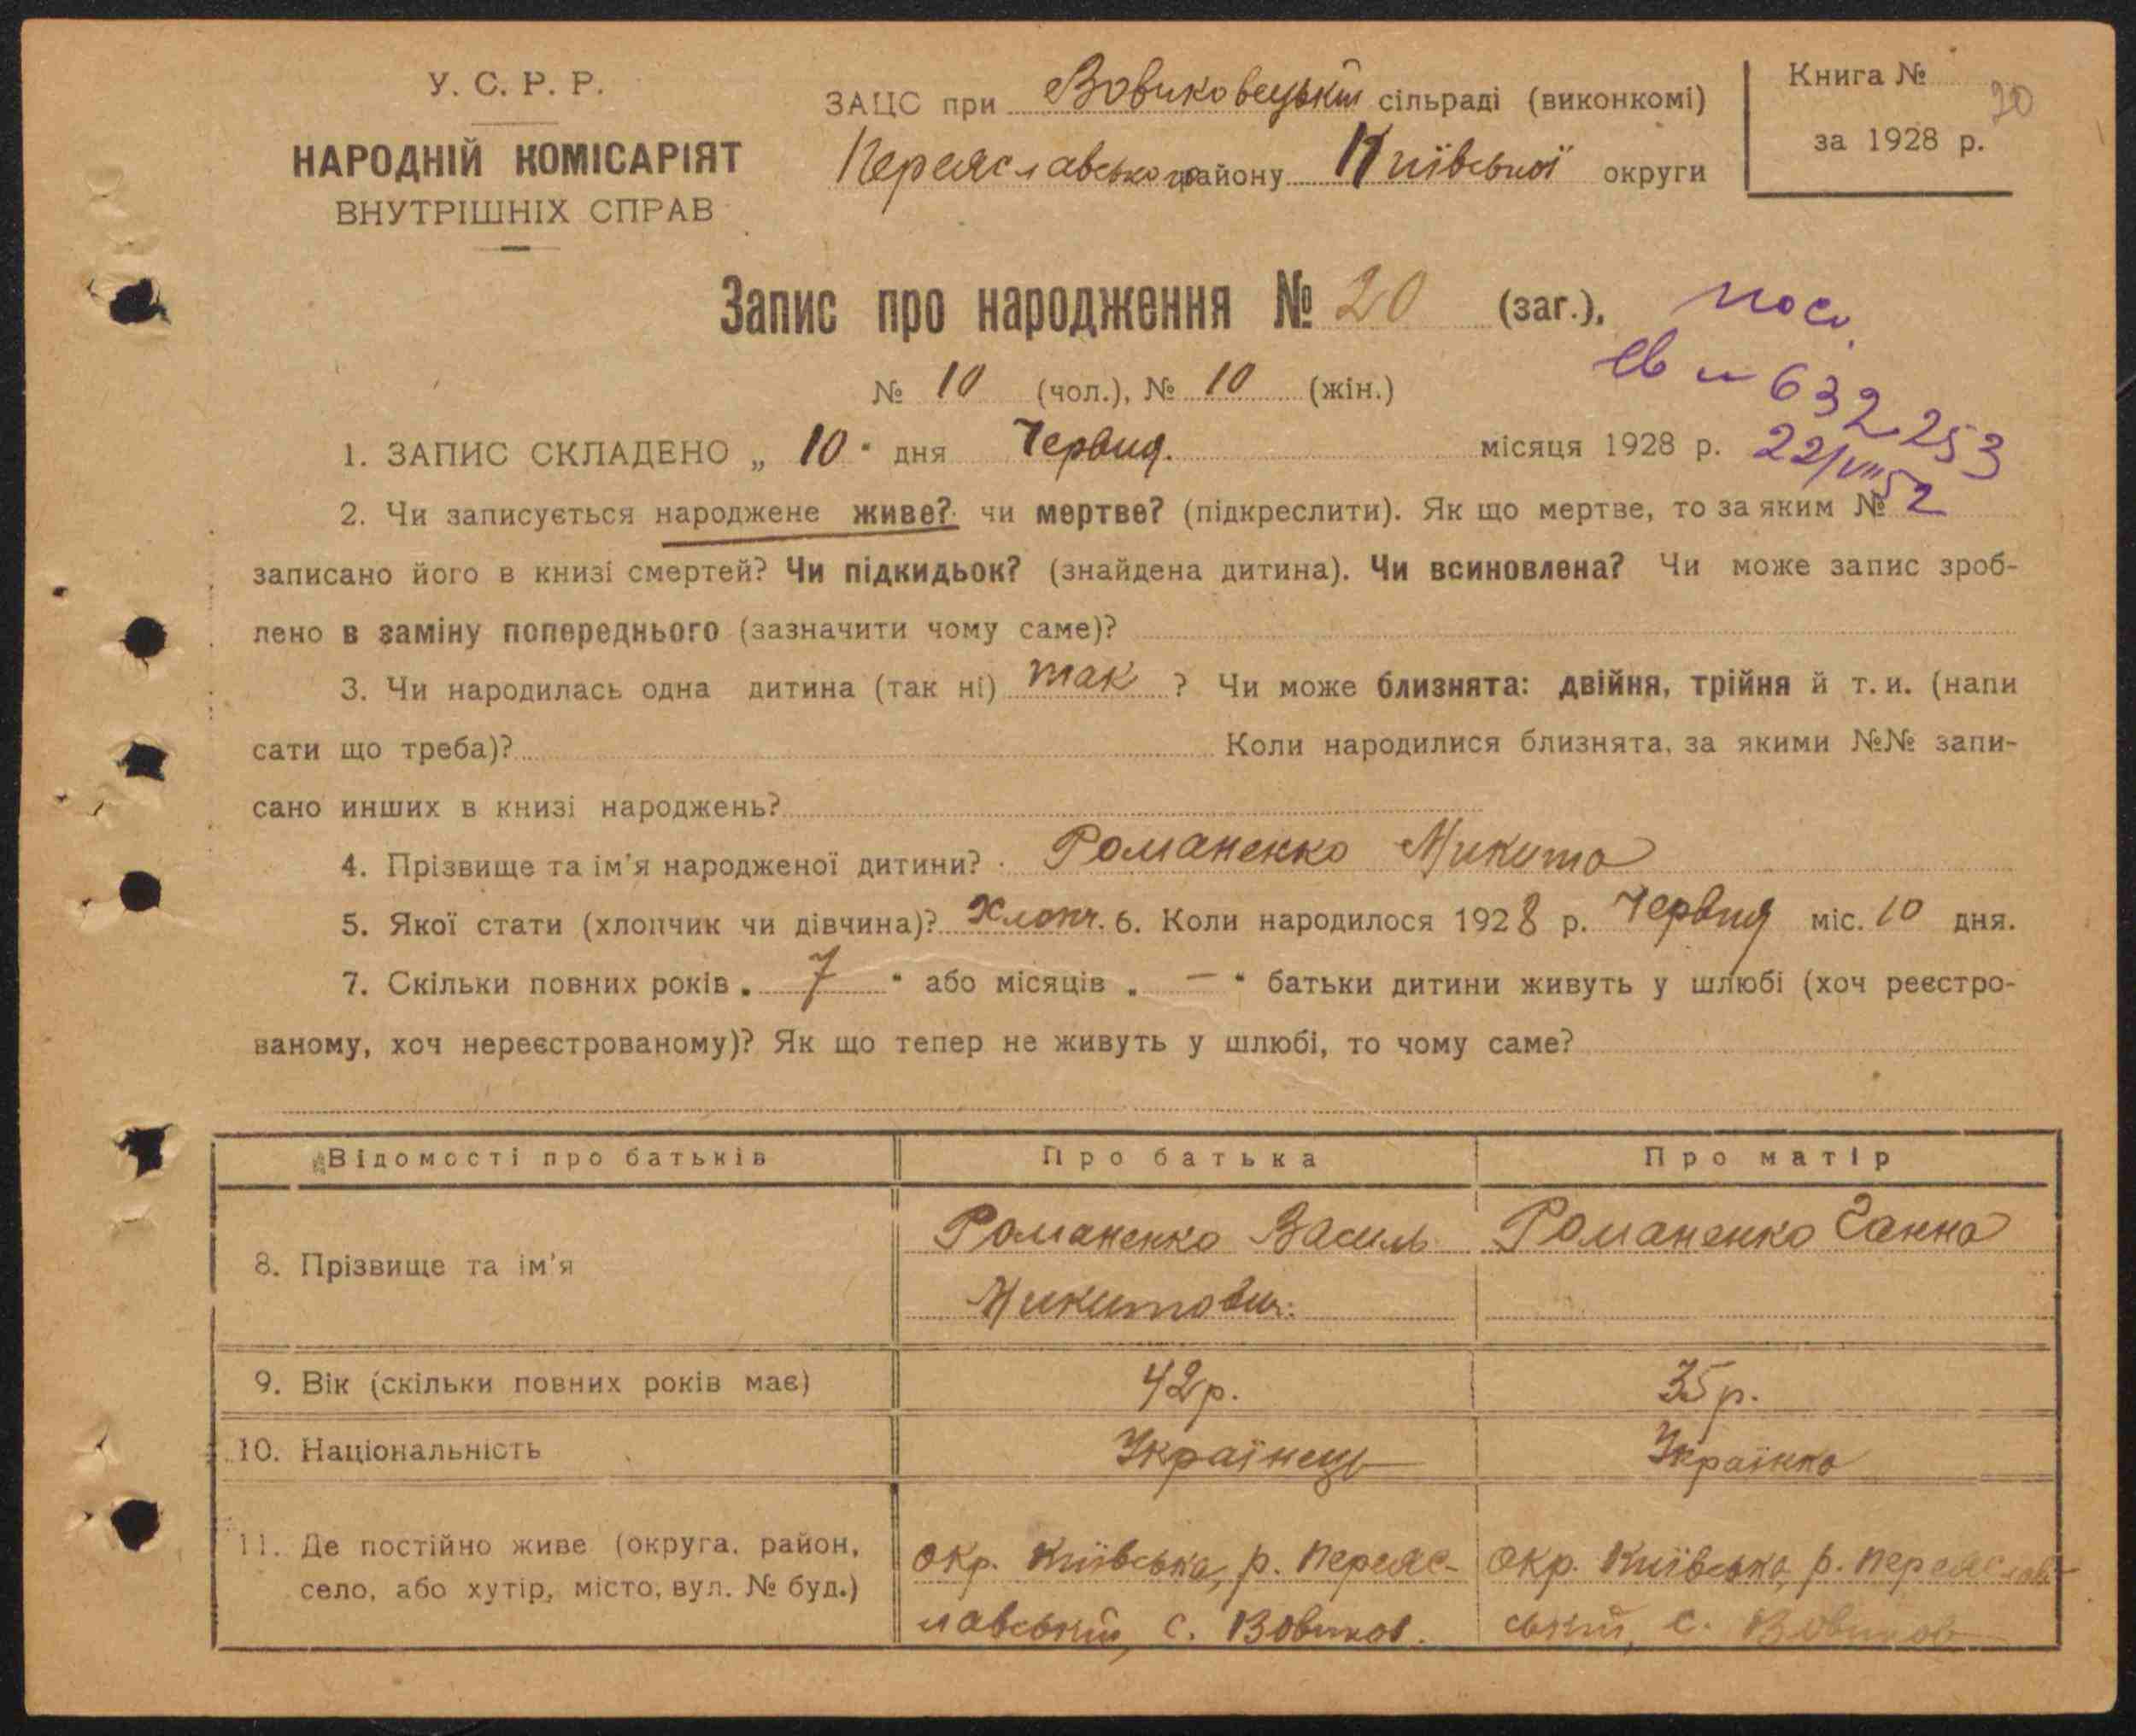 У. С. Р. Р.
НАРОДНІЙ КОМІСАРІЯТ
ВНУТРІШНІХ СПРАВ
ЗАЦС при Вовчковецькій сільраді (виконкомі)
Переяславського району Київської округи
Книга № 20
за 1928 р.
Запис про народження № 20 (заг.),
№ 10 (чол.), № 10 (жін.)
632253
22/VIII 52
1. ЗАПИС СКЛАДЕНО „ 10 " дня Червця. місяця 1928 р.
2. Чи записується народжене живе? чи мертве? (підкреслити). Як що мертве, то за яким №
записано його в книзі смертей? Чи підкидьок? (знайдена дитина). Чи всиновлена? Чи може запис зроб-
лено в заміну попереднього (зазначити чому саме)?
3. Чи народилась одна дитина (так ні) так ? Чи може близнята: двійня, трійня й т. и. (напи
сати що треба)? Коли народилися близнята, за якими №№ запи-
сано инших в книзі народжень?
4. Прізвище та ім'я народженої дитини? Романенко Микита
5. Якої стати (хлопчик чи дівчина)? Хлопч. 6. Коли народилося 1928 р. Червця міс. 10 дня.
7. Скільки повних років „ 7 " або місяців „ — " батьки дитини живуть у шлюбі (хоч реєстро-
ваному, хоч нереєстрованому)? Як що тепер не живуть у шлюбі, то чому саме?
Відомості про батьків Про батька Про матір
8. Прізвище та ім'я Романенко Василь Микитович. Романенко Ганна
9. Вік (скільки повних років має) 42р. 35р.
10. Національність Українець Українка
11. Де постійно живе (округа, район, село, або хутір, місто, вул. № буд.)
окр. Київська, р. Переяс-
лавський, с. Вовчков.
окр. Київська, р. Переяслав-
ський, с. Вовчков